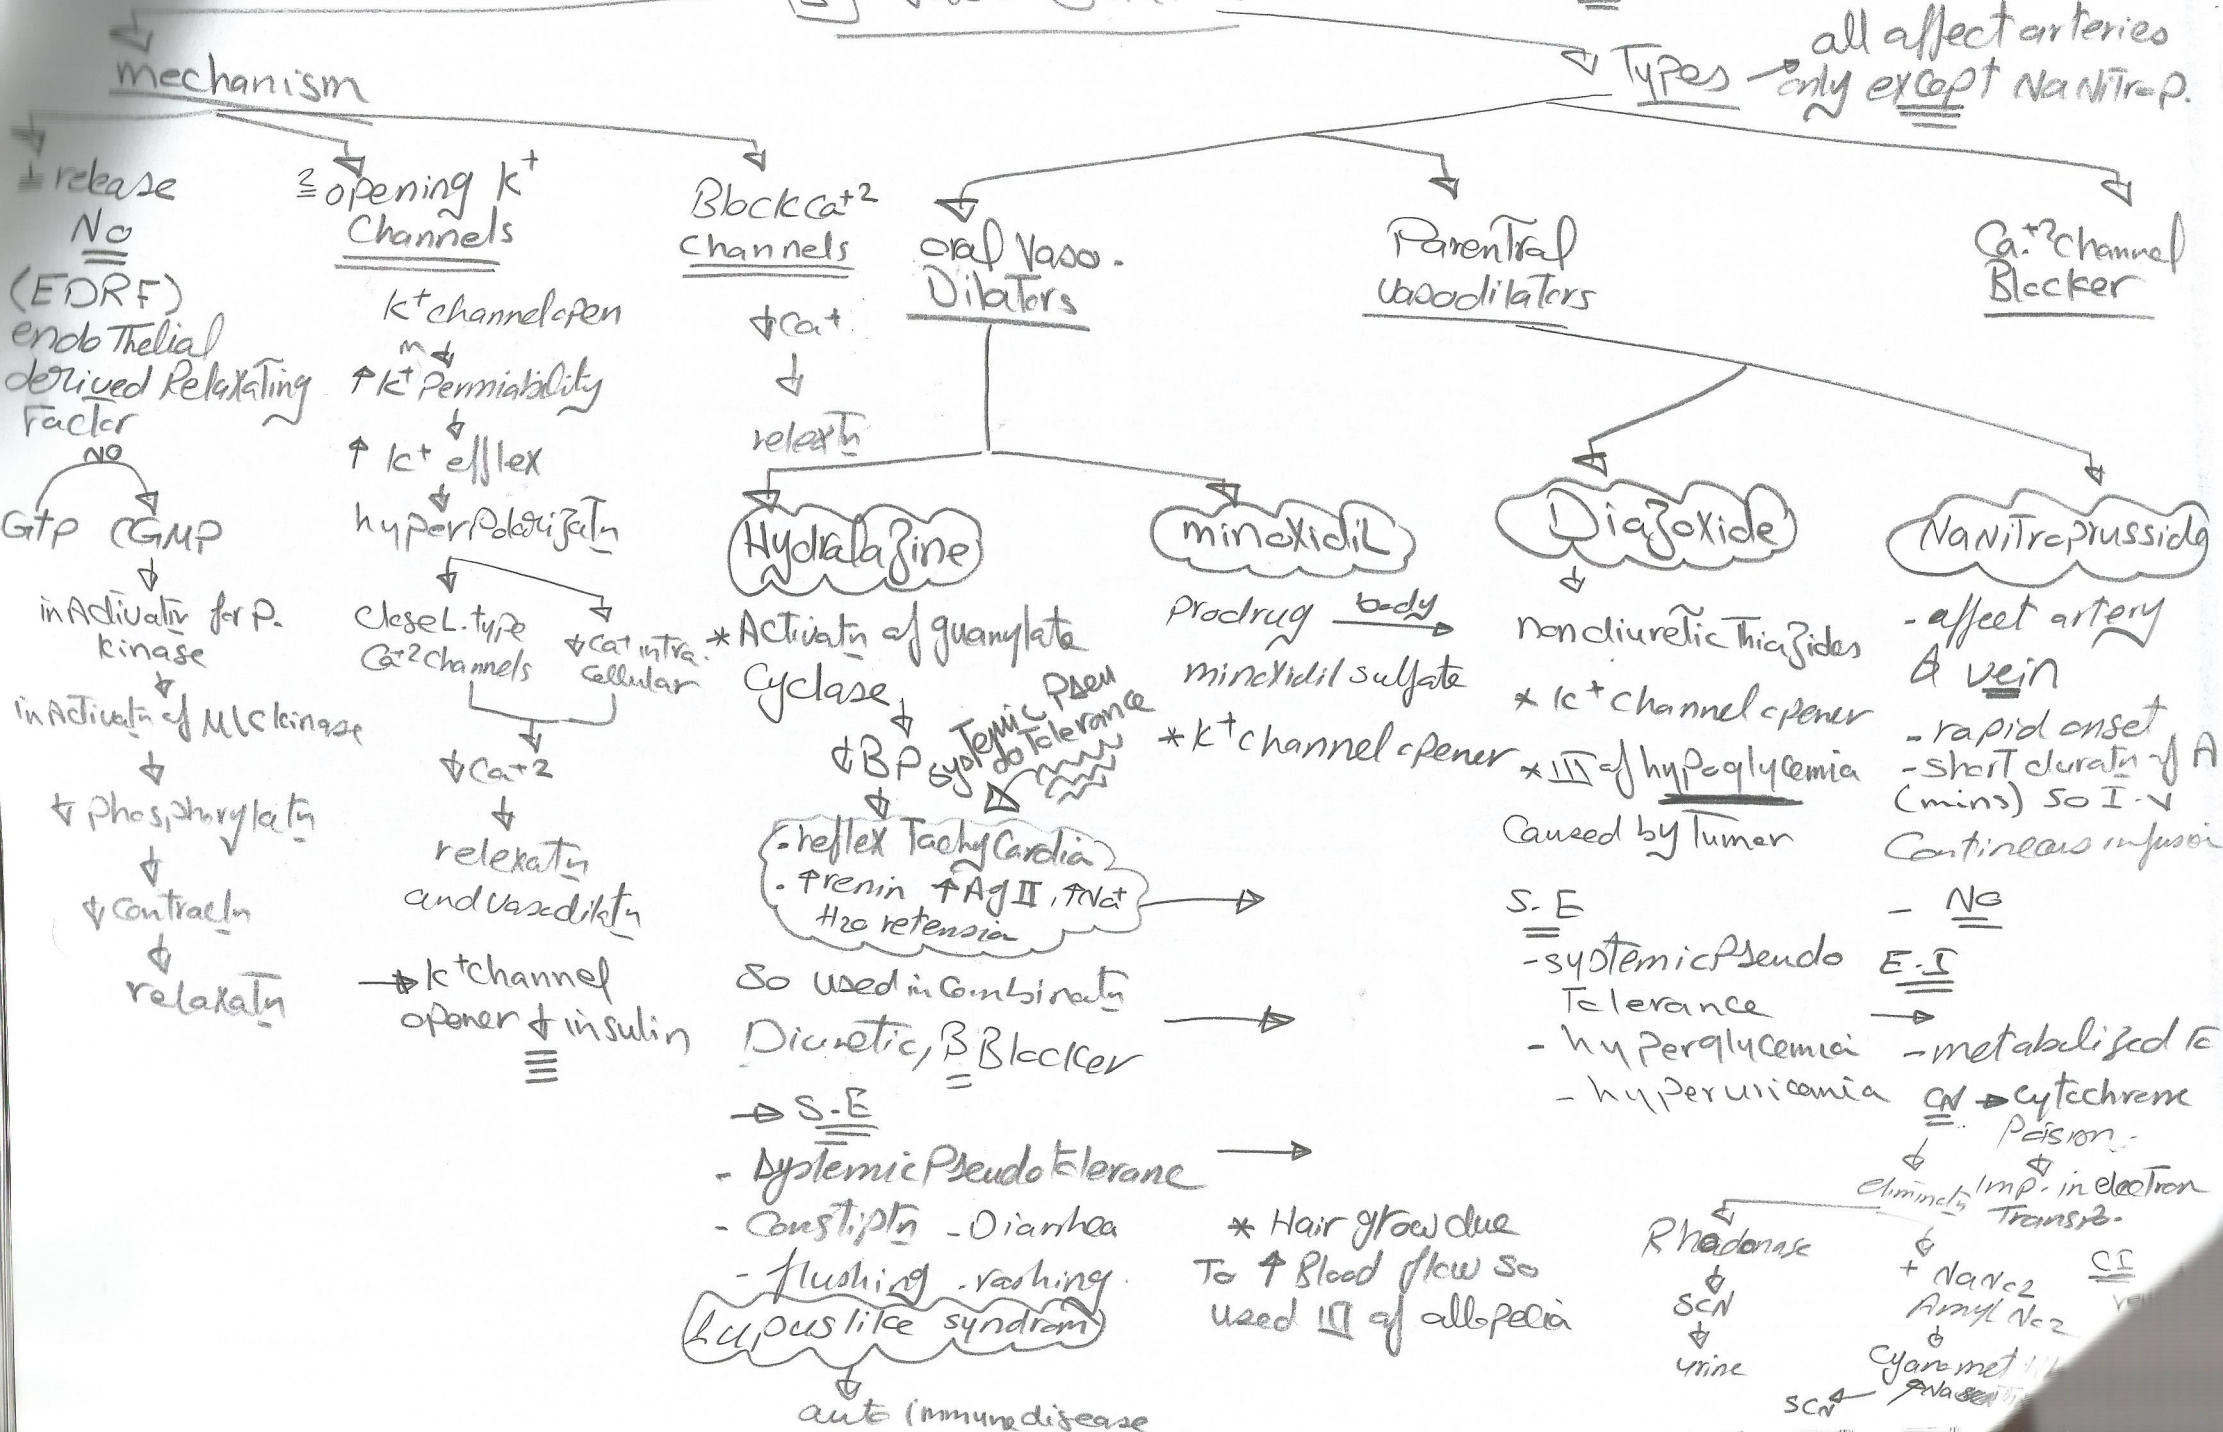 mechanism
1 release
No
(EDRF)
endothelial
derived Relaxating
Factor
NO
Gtp CGMP
inActivatn for P.
kinase
inActivatn of MLC kinase
↓ phosphorylatn
↓ contractn
relaxatn
2 opening K+
Channels
K+ channel open
↑ K+ Permiability
↑ K+ efflex
hyperPolarizatn
Close L. type
Ca+2 channels
↓ Ca+ intra
cellular
↓ Ca+2
relexatn
and vasodilatn
→ K+ channel
opener ↓ insulin
Block Ca+2
channels
↓ Ca+
relextn
Types → all affect arteries
only except Na Nitro P.
oral Vaso-
Dilators
Hydralazine
* Activatn of guanylate
Cyclase
↓ BP
systemic pseu
do tolerance
- reflex TachyCardia
. ↑ renin ↑ Ag II, ↑ Na+
H2o retension
So used in Combinatn
Diuretic, B Blocker
→ S.E
- systemic Pseudo toleranc
- Constiptn - Diarrhea
- flushing - rashing
Lupus like syndrom
auto immune disease
minoxidil
Prodrug body →
minoxidil sulfate
* K+ channel opener
* Hair grow due
To ↑ Blood flow so
used III of allopelia
Parentral
vasodilators
Diazoxide
non diuretic Thiazides
* K+ channel opener
* III of hypoglycemia
Caused by Tumer
S.E
- systemic Pseudo
Tolerance
- hyperglycemia
- hyperuricemia
Na Nitroprusside
- affect artery
& vein
- rapid onset
- short duratn of A
(mins) so I.V
Contineous infusion
- NO
E.I
→
- metabolized to
CN → Cytochrome
Poision
Imp. in electron
Trans
eliminatn
Rhodonase
SCN
urine
+ NaNo2
Amyl No2
Cyanomet
SCN
CI
Ca+2 channel
Blocker